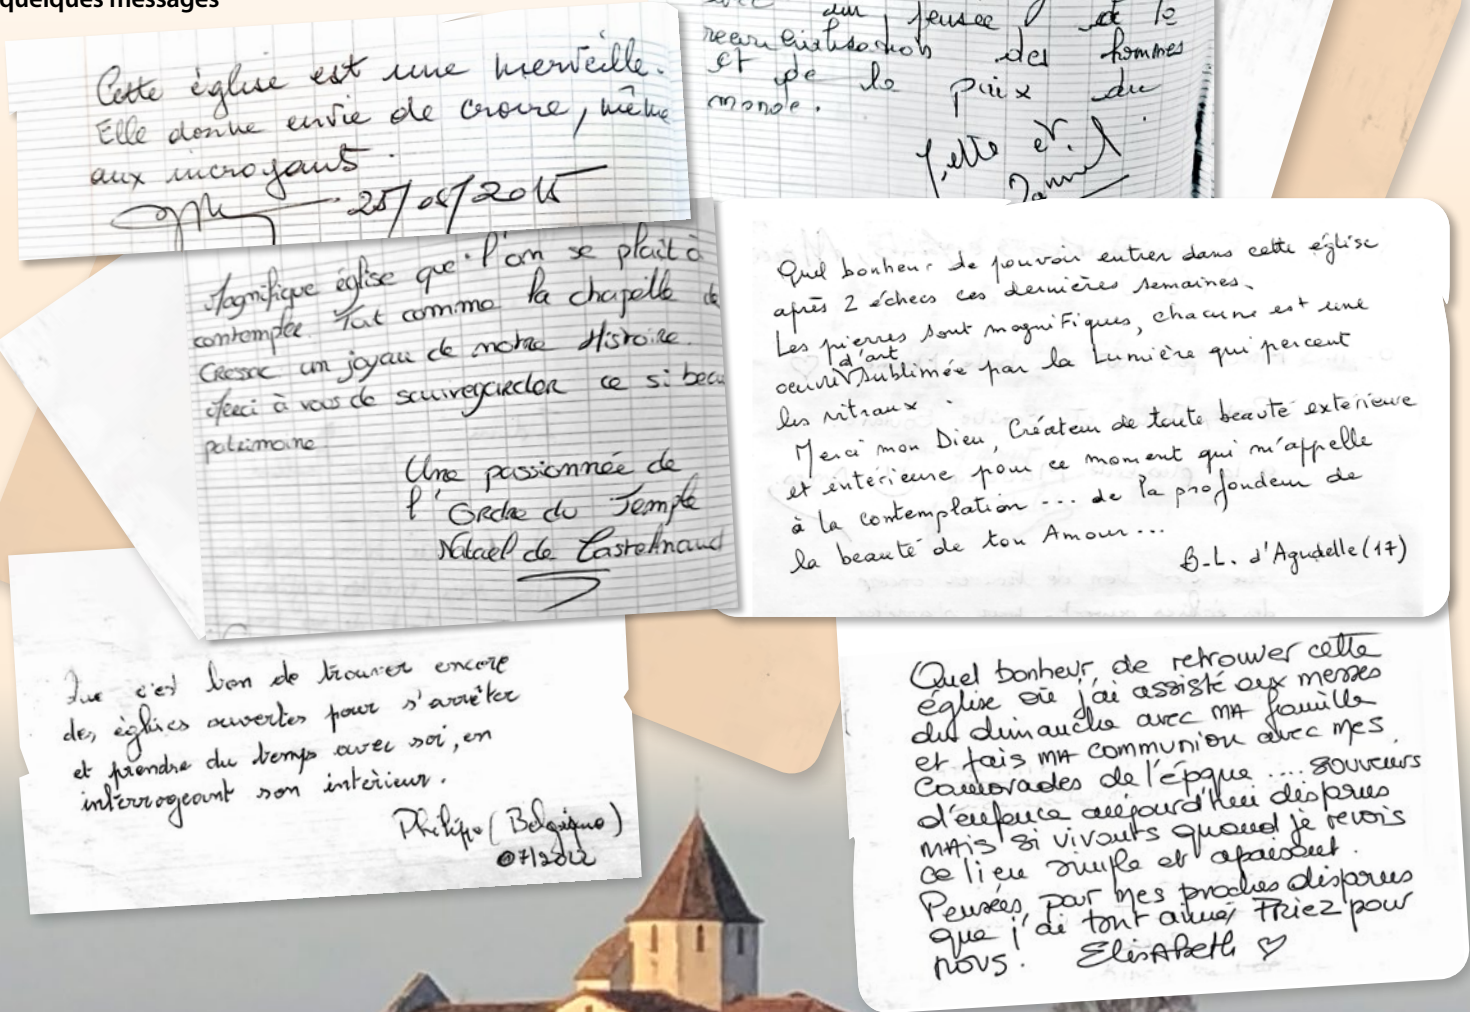 quelques messages
Cette église est une merveille.
Elle donne envie de croire, même
aux incroyants.
25/08/2015
pensée et le
reconciliation des hommes
et de la paix du
monde.
et
Magnifique église que l'on se plait à
contempler. Tout comme la chapelle de
Cressac un joyau de notre Histoire.
Merci à vous de sauvegarder ce si beau
patrimoine.
Une passionnée de
l'Ordre du Temple
de Castelnaud
Quel bonheur de pouvoir entrer dans cette église
après 2 échecs ces dernières semaines.
Les pierres sont magnifiques, chacune est une
d'art
oeuvre sublimée par la Lumière qui percent
les vitraux.
Merci mon Dieu, Créateur de toute beauté extérieure
et intérieure pour ce moment qui m'appelle
à la contemplation ... de la profondeur de
la beauté de ton Amour...
B-L. d'Agudelle (17)
Que c'est bon de trouver encore
des églises ouvertes pour s'arrêter
et prendre du temps avec soi, en
interrogeant son intérieur.
Philippe (Belgique)
07/2022
Quel bonheur de retrouver cette
église où j'ai assisté aux messes
du dimanche avec MA famille
et fais MA communion avec mes
Camarades de l'époque .... souvenirs
d'enfance aujourd'hui disparus
MAIS si vivants quand je revois
ce lieu simple et apaisant.
Pensées pour mes proches disparus
que j'ai tant aimé, Priez pour
nous. ElisAbeth ♡